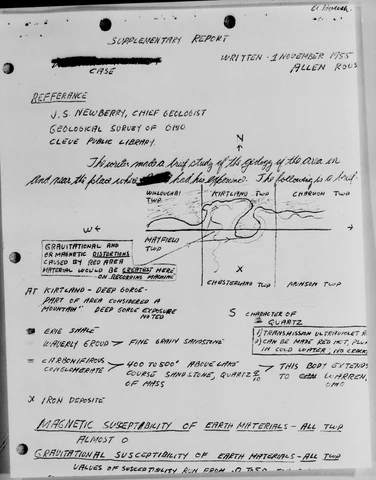 SUPPLEMENTARY REPORT
CASE
WRITTEN - 1 NOVEMBER 1955
ALLEN
REFFERANCE
J.S. NEWBERRY, CHIEF GEOLOGIST
GEOLOGICAL SURVEY OF OHIO
CLEVE PUBLIC LIBRARY.
N
The writer made a brief study of the geology of the area in
and near the place where had his experience. The following is a brief.
WILLOUGHBI TWP
KIRTLAND TWP
CHARDON TWP
W
MAYFIELD TWP
CHESTERLAND TWP
MUNSON TWP
X
GRAVITATIONAL AND
OR MAGNETIC DISTORTIONS
CAUSED BY RED AREA
MATERIAL WOULD BE GREATEST HERE
ON RECORDING MACHINE
AT KIRTLAND - DEEP GORGE -
PART OF AREA CONSIDERED A
MOUNTAIN" DEEP GORGE EXPOSURE
NOTED
S
CHARACTER OF
QUARTZ
1) TRANSMISSAN ULTRAVIOLET
2) CAN BE MADE RED HOT,
IN COLD WATER, NO CRACK
ERIE SHALE
WAVERLY GROUP > FINE GRAIN SANDSTONE
= CARBONIFIROUS
CONGLOMERATE > 400 TO 500' ABOVE LAKE
COURSE SANDSTONE, QUARTZ 9/10
OF MASS
THIS BODY EXTENDS
TO WARREN,
OHIO
X IRON DEPOSITE
MAGNETIC SUSEPTABILITY OF EARTH MATERIALS - ALL TWP
ALMOST 0
GRAVITATIONAL SUSCEPTABILITY OF EARTH MATERIALS - ALL TWP
VALUES OF SUSCEPTIBILITY RUN FROM